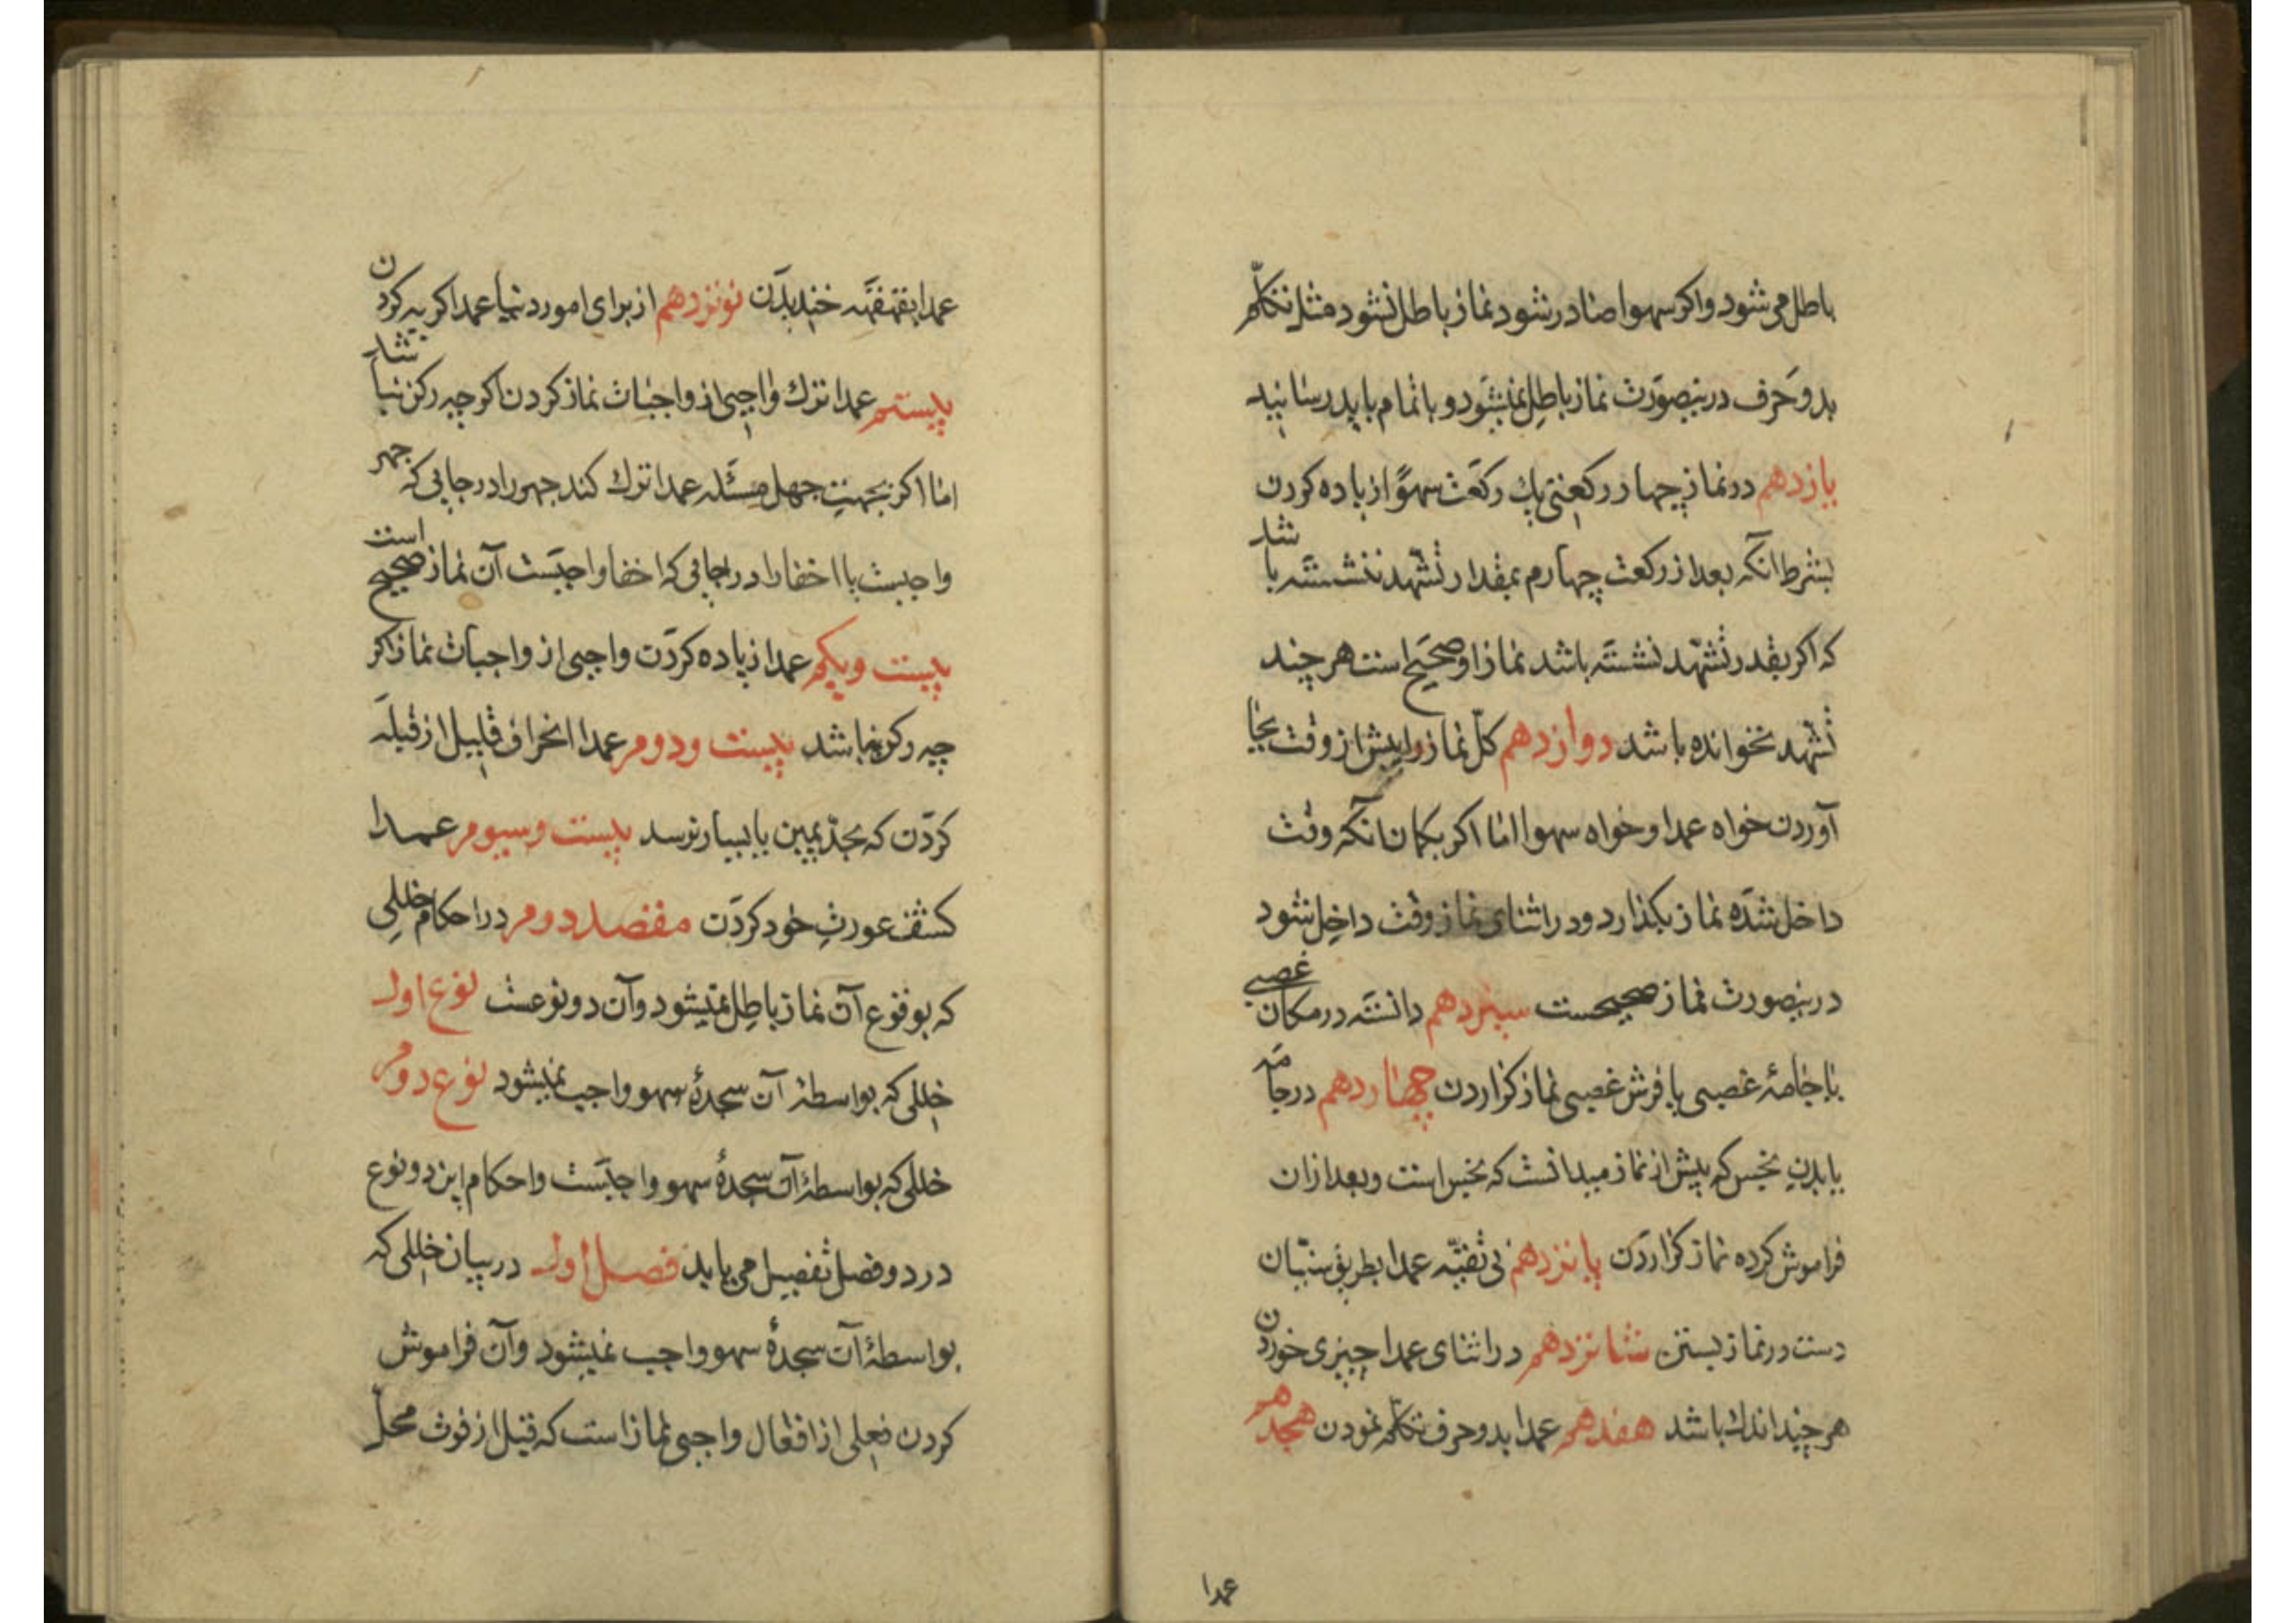 باطل می شود و اکر سهوا صادر شود نماز باطل نشود مثل تکلّم
بدو حرف درینصورت نماز باطل نمیشود و باتمام باید رسانید
یازدهم در نماز چهار رکعتی یك رکعت سهوًا زیاده کردن
بشرط انکه بعد از رکعت چهارم بمقدار تشهد ننشسته باشد
که اکر بقدر تشهّد نشسته باشد نماز او صحیح است هر چند
تشهد نخوانده باشد دوازدهم کلّ نماز را پیش از وقت بجا
آوردن خواه عمدا و خواه سهوا اما اکر بکمان انکه وقت
داخل شده نماز بکذارد و در اثنای نماز وقت داخل شود
درینصورت نماز صحیحست سیزدهم دانسته در مکان غصبی
یا جامهٔ غصبی یا فرش غصبی نماز کزاردن چهاردهم در جامه
یا بدن نجس که پیش از نماز میدانست که نجس است و بعد ازان
فراموش کرده نماز کزاردن پانزدهم بی تقیّه عمدا بطریق سنّیان
دست در نماز بستن شانزدهم در اثنای عمدا چیزی خوردن
هر چند اندك باشد هفدهم عمدا بدو حرف تکلّم نمودن هجدهم
عمدا
عمدا بقهقهه خندیدن نونزدهم از برای امور دنیا عمدا کریه کردن
بیستم عمدا ترك واجبی از واجبات نماز کردن اکر چه رکن نباشد
اما اکر بجهت جهل مسئله عمدا ترك کند جهر را در جایی که جهر
واجبست یا اخفا را در جایی که اخفا واجبست آن نماز صحیح است
بیست و یکم عمدا زیاده کردن واجبی از واجبات نماز اکر
چه رکن نباشد بیست و دوم عمدا انحراف قلیل از قبله
کردن که بحدّ یمین یا یسار نرسد بیست و سیوم عمدا
کشف عورت خود کردن مقصد دوم در احکام خللی
که بوقوع آن نماز باطل نمیشود و آن دو نوعست نوع اول
خللی که بواسطهٔ آن سجدهٔ سهو واجب نمیشود نوع دوم
خللی که بواسطهٔ آن سجدهٔ سهو واجبست و احکام این دو نوع
در دو فصل تفصیل می یابد فصل اول در بیان خللی که
بواسطهٔ آن سجدهٔ سهو واجب نمیشود و آن فراموش
کردن فعلی از افعال واجبی نماز است که قبل از فوت محل